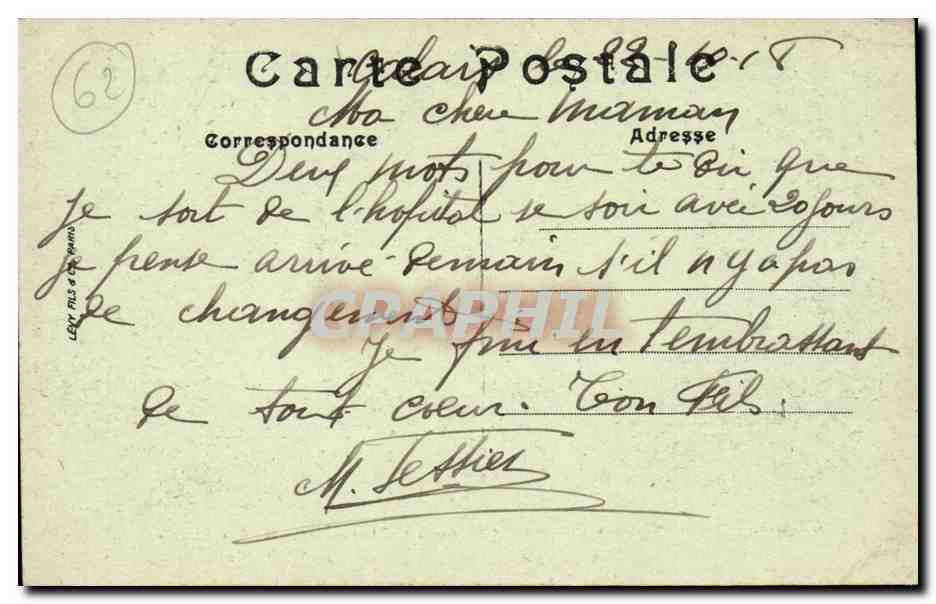 62
Carte Postale
Calais le 22-10-18
Ma chere maman
Correspondance
Adresse
Deux mots pour te dir que
je sort de l'hopital se soir avec 20 jours
je pense arrivé demain s'il n'y a pas
de changement
Je fini en t'embrassant
de tout coeur. Ton Fils.
M. Tessier
LEVY FILS & Cie PARIS
CPAPHIL